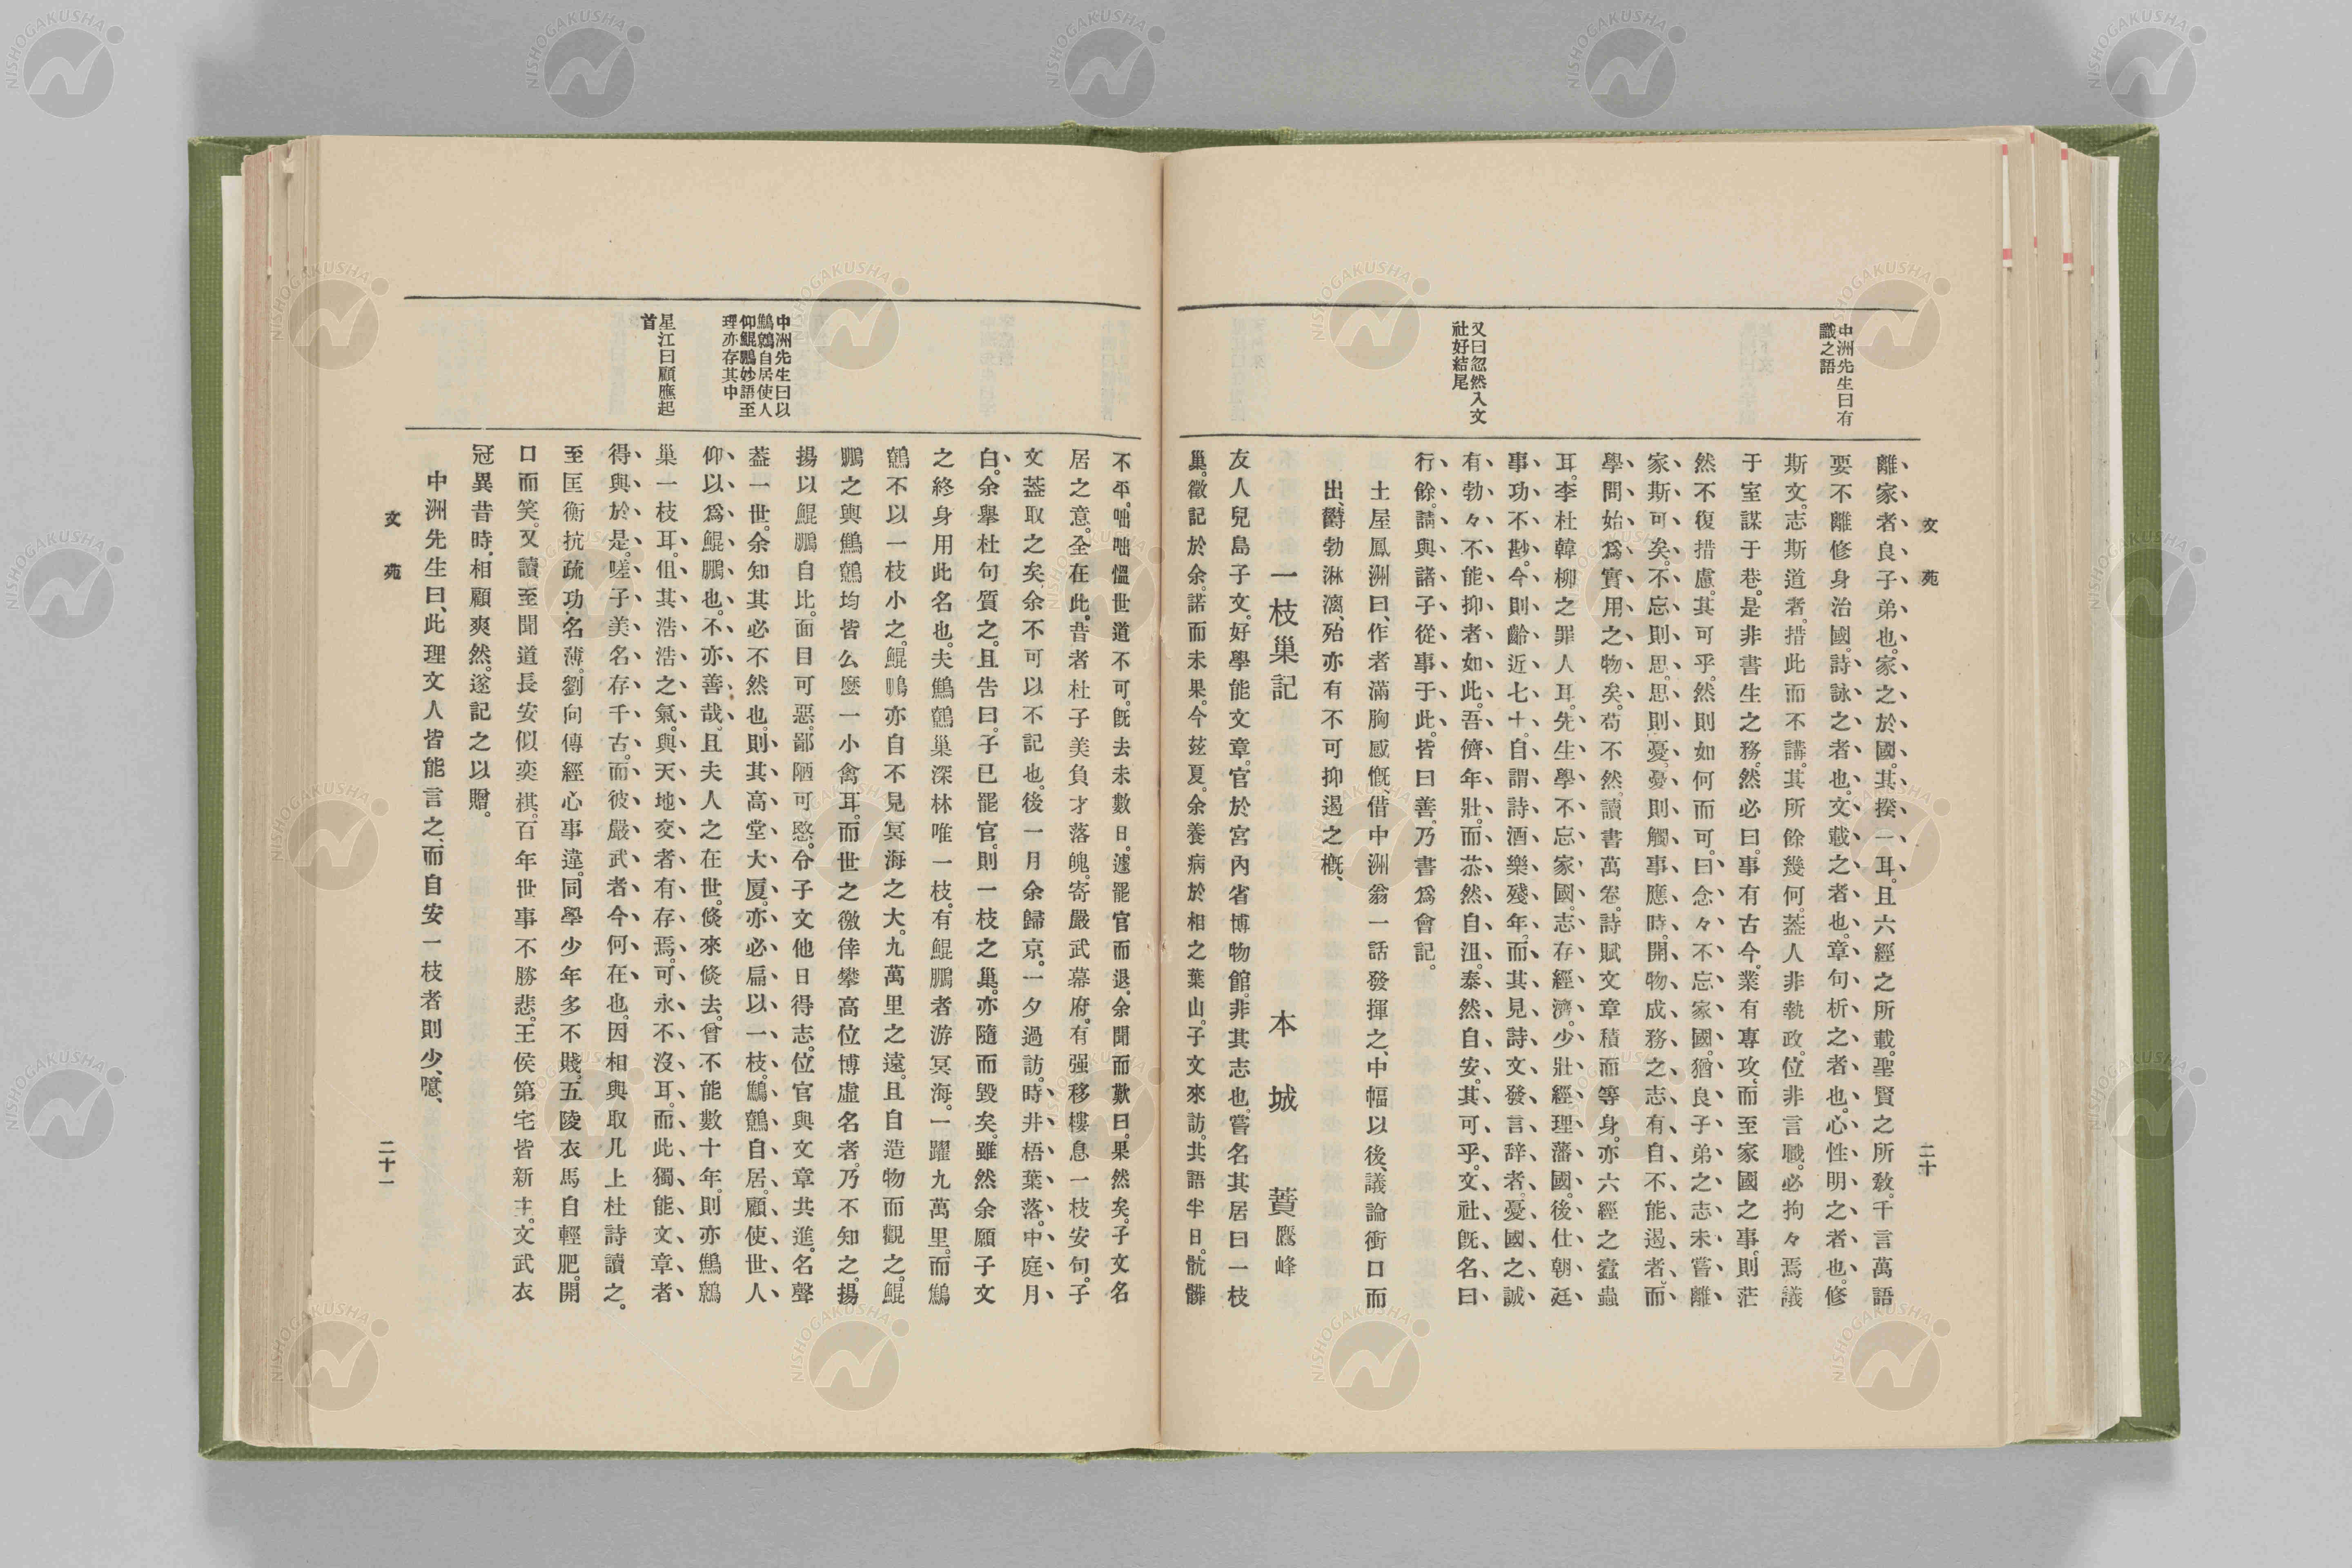 文苑
二十
中洲先生曰有
識之語
又曰忽然入文
社好結尾
離家者良子弟也。家之於國。其揆一耳。且六經之所載。聖賢之所敎。千言萬語
要不離修身治國。詩詠之者也。文載之者也。章句析之者也。心性明之者也。修
斯文。志斯道者。措此而不講。其所餘幾何。葢人非執政。位非言職。必拘々焉議
于室謀于巷。是非書生之務。然必曰。事有古今。業有專攻。而至家國之事。則茫
然不復措慮。其可乎。然則如何而可。曰念々不忘家國。猶良子弟之志未嘗離
家。斯可矣。不忘則思。思則憂。憂則觸事應時。開物成務之志有自不能遏者。而
學問始爲實用之物矣。苟不然。讀書萬卷。詩賦文章積而等身。亦六經之蠹蟲
耳。李杜韓柳之罪人耳。先生學不忘家國。志存經濟。少壯經理藩國。後仕朝廷。
事功不尠。今則齡近七十。自謂詩酒樂殘年。而其見詩文發言辭者。憂國之誠
有勃々不能抑者如此。吾儕年壯。而恭然自沮。泰然自安。其可乎。文社既名曰
行餘。請與諸子從事于此。皆曰善。乃書爲會記。
土屋鳳洲曰、作者滿胸感慨、借中洲翁一話發揮之、中幅以後、議論衝口而
出、欝勃淋漓、殆亦有不可抑遏之概、
一枝巢記 本城 蕡 鷹峰
友人兒島子文。好學能文章。官於宮內省博物館。非其志也。嘗名其居曰一枝
巢。徵記於余。諾而未果。今玆夏。余養病於相之葉山。子文來訪。共語半日。骯髒
不平。咄咄慍世道不可。既去未數日。遽罷官而退。余聞而歎曰。果然矣。子文名
居之意。全在此。昔者杜子美負才落魄。寄嚴武幕府。有强移棲息一枝安句。子
文葢取之矣。余不可以不記也。後一月余歸京。一夕過訪。時井梧葉落。中庭月
白。余擧杜句質之。且告曰。子已罷官。則一枝之巢。亦隨而毀矣。雖然余願子文
之終身用此名也。夫鷦鷯巢深林唯一枝。有鯤鵬者游冥海。一躍九萬里。而鷦
鷯不以一枝小之。鯤鵬亦自不見冥海之大。九萬里之遠。且自造物而觀之。鯤
鵬之與鷦鷯均皆么麼一小禽耳。而世之徼倖攀高位博虛名者。乃不知之。揚
揚以鯤鵬自比。面目可惡。鄙陋可愍。令子文他日得志。位官與文章共進。名聲
葢一世。余知其必不然也。則其高堂大厦。亦必扁以一枝。鷦鷯自居。顧使世人
仰以爲鯤鵬也。不亦善哉。且夫人之在世。倏來倏去。曾不能數十年。則亦鷦鷯
巢一枝耳。但其浩浩之氣。與天地交者有存焉。可永不沒耳。而此獨能文章者
得與於是。嗟子美名存千古。而彼嚴武者今何在也。因相與取几上杜詩讀之。
至匡衡抗疏功名薄。劉向傳經心事違。同學少年多不賤。五陵衣馬自輕肥。開
口而笑。又讀至聞道長安似奕棋。百年世事不勝悲。王侯第宅皆新主。文武衣
冠異昔時。相顧爽然。遂記之以贈。
中洲先生曰、此理文人皆能言之、而自安一枝者則少、噫、
中洲先生曰以
鷦鷯自居使人
仰鯤鵬妙語至
理亦存其中
星江曰顧應起
首
文苑
二十一
NISHOGAKUSHA